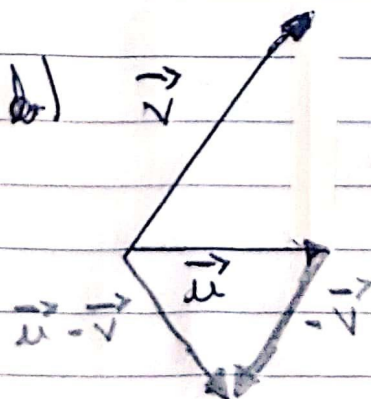 b)
$\vec{v}$
$\vec{u}$
$\vec{u} - \vec{v}$
$-\vec{v}$